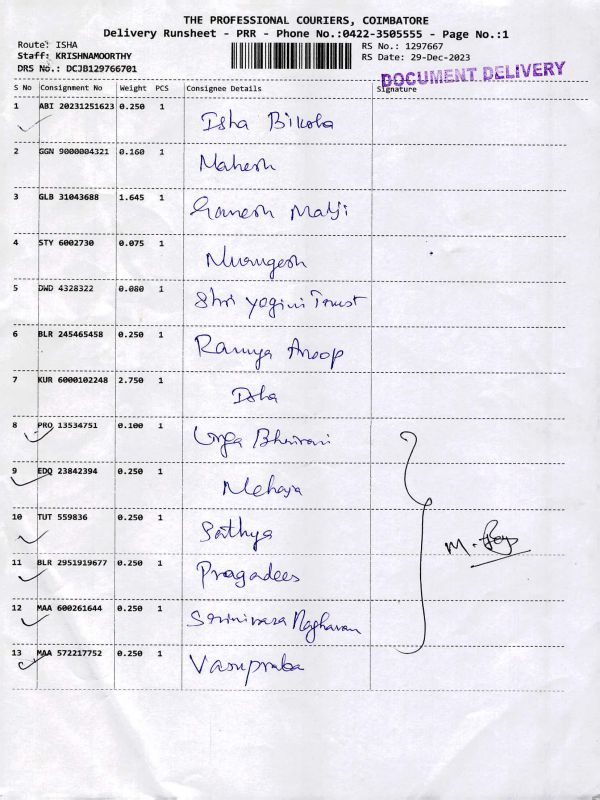 THE PROFESSIONAL COURIERS, COIMBATORE
Delivery Runsheet - PRR - Phone No.:0422-3505555 - Page No.:1
Route: ISHA
RS No.: 1297667
Staff: KRISHNAMOORTHY
RS Date: 29-Dec-2023
DRS No.: DCJB129766701
DOCUMENT DELIVERY
S No Consignment No Weight PCS Consignee Details Signature
1 ABI 20231251623 0.250 1 Isha Bikola
2 GGN 9000004321 0.160 1 Mahesh
3 GLB 31043688 1.645 1 Ganesh Malji
4 STY 6002730 0.075 1 Murugesh
5 DWD 4328322 0.080 1 Shri Yogini Trust
6 BLR 245465458 0.250 1 Ramya Anoop
7 KUR 6000102248 2.750 1 Isha
8 PRO 13534751 0.100 1 Bhairavi
9 EDQ 23842394 0.250 1 Mehaja
10 TUT 559836 0.250 1 Sathya
11 BLR 2951919677 0.250 1 Pragadees
12 MAA 600261644 0.250 1 Srinivasa Raghavan
13 MAA 572217752 0.250 1 Vasupraba